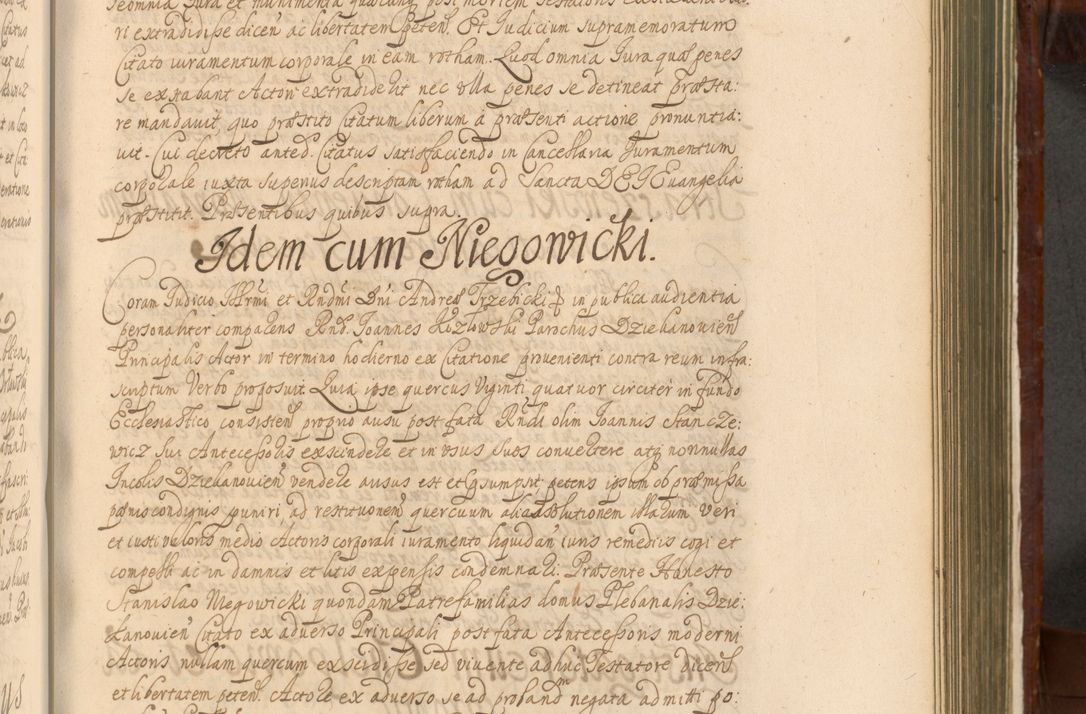 ri extradidisse dicen̄ ac libertatem peten̄. Et Iudicium supramemoratum
Citato iuramentum corporale in eam rotham. Quod omnia Iura quæ penes
se extabant Actori extradiderit nec ulla penes se detineat præsta:
re mandavit, quo præstito Citatum liberum a præsenti actione pronuntia:
vit. Cui decreto anted. Citatus satisfaciendo in Cancellaria Iuramentum
corporale iuxta superius descriptam rotham ad Sancta DEI Euangelia
præstitit. Præsentibus quibus supra.
Idem cum Niegowicki.
Coram Iudicio Illrm̄i et Rndm̄i Dn̄i Andreæ Trzebicki in publica audientia
personaliter comparens Rnd. Ioannes Kozłowski Parochus Dziekanovien̄
Principalis Actor in termino hodierno ex Citatione provenienti contra reum infra:
scriptum Verbo proposuit. Quia ipse quercus Viginti quatuor circiter in fundo
Ecclesiastico consisten̄ proprio ausu post fata Rndi olim Ioannis Stancze:
wicz sui Antecessoris exscindere et in usus suos convertere atq nonnullas
Incolis Dziekanovien̄ vendere ausus est et præsumpsit petens ipsum ob præmissa
pœnis condignis puniri ad restitutionem quercuum alias solutionem illarum veri
et iusti valoris medio Actoris corporali iuramento liquidan̄ iuris remediis cogi et
compelli ac in damnis et litis expensis condemnari. Præsente Honesto
Stanislao Niegowicki quondam Patrefamilias domus Plebanalis Dzie:
kanovien̄ Citato ex adverso Principali post fata Antecessoris moderni
Actoris nullam quercum exscidisse sed vivente adhuc Testatore dicen̄
et libertatem peten̄. Actore ex adverso se ad proband negata admitti po: